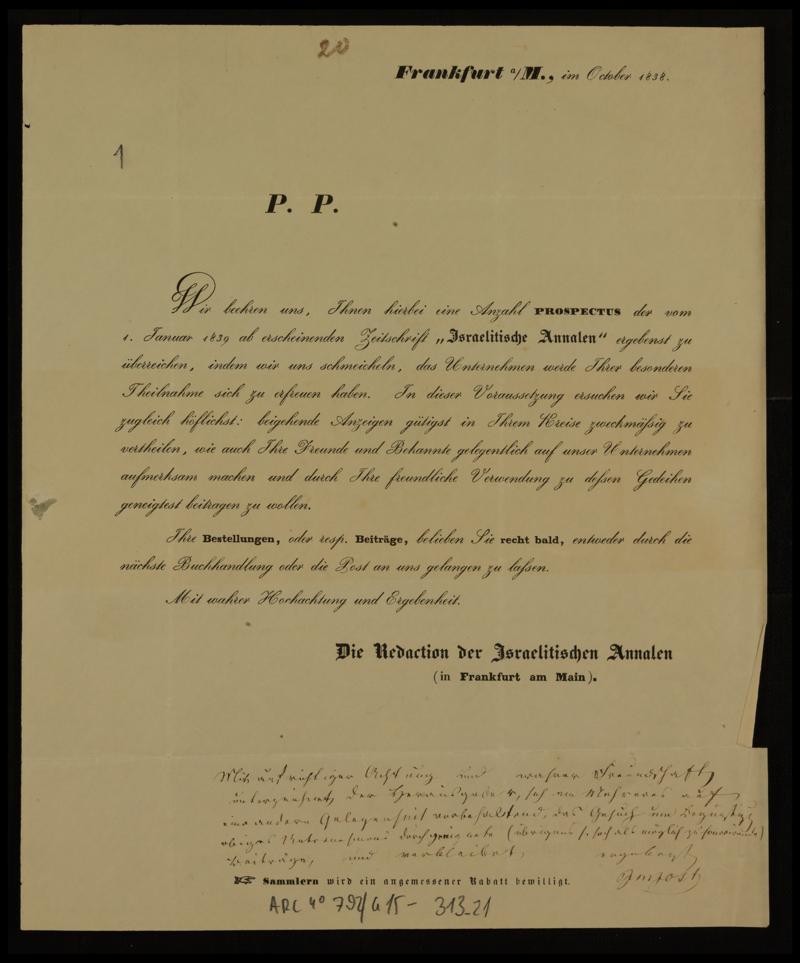 20
Frankfurt a/M., im October 1838.
1
P. P.
Wir beehren uns, Ihnen hierbei eine Anzahl PROSPECTUS der vom
1. Januar 1839 ab erscheinenden Zeitschrift „Israelitische Annalen“ ergebenst zu
überreichen, indem wir uns schmeicheln, das Unternehmen werde Ihrer besonderen
Theilnahme sich zu erfreuen haben. In dieser Voraussetzung ersuchen wir Sie
zugleich höflichst: beigehende Anzeigen gütigst in Ihrem Kreise zweckmäßig zu
vertheilen, wie auch Ihre Freunde und Bekannte gelegentlich auf unser Unternehmen
aufmerksam machen und durch Ihre freundliche Verwendung zu deßen Gedeihen
geneigtest beitragen zu wollen.
Ihre Bestellungen, oder resp. Beiträge, belieben Sie recht bald, entweder durch die
nächste Buchhandlung oder die Post an uns gelangen zu laßen.
Mit wahrer Hochachtung und Ergebenheit.
Die Redaction der Israelitischen Annalen
(in Frankfurt am Main).
Mit aufrichtiger Achtung und wahrer Freundschaft
unterzeichnet der Herausgeber, sich ein Mehreres auf
eine andere Gelegenheit vorbehaltend, das Gesuch um
obiges Unternehmens durch (übrigens so bald als möglich zu)
Beiträge, und verbleibet, ergebenst
Jost
☞ Sammlern wird ein angemessener Rabatt bewilligt.
ARC 4° 792/G15 - 313-21